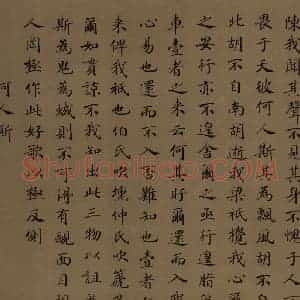 陳我聞其聲不見其身不愧于人
畏于天彼何人斯其為飄風胡不
北胡不自南胡逝我梁祇攪我心
之安行亦不遑舍爾之亟行遑脂
車壹者之來云何其盱爾還而入
心易也還而不入否難知也壹者
來俾我祇也伯氏吹壎仲氏吹篪
爾如貫諒不我知出此三物以詛
斯為鬼為蜮則不可得有靦面目
人罔極作此好歌以極反側
何人斯